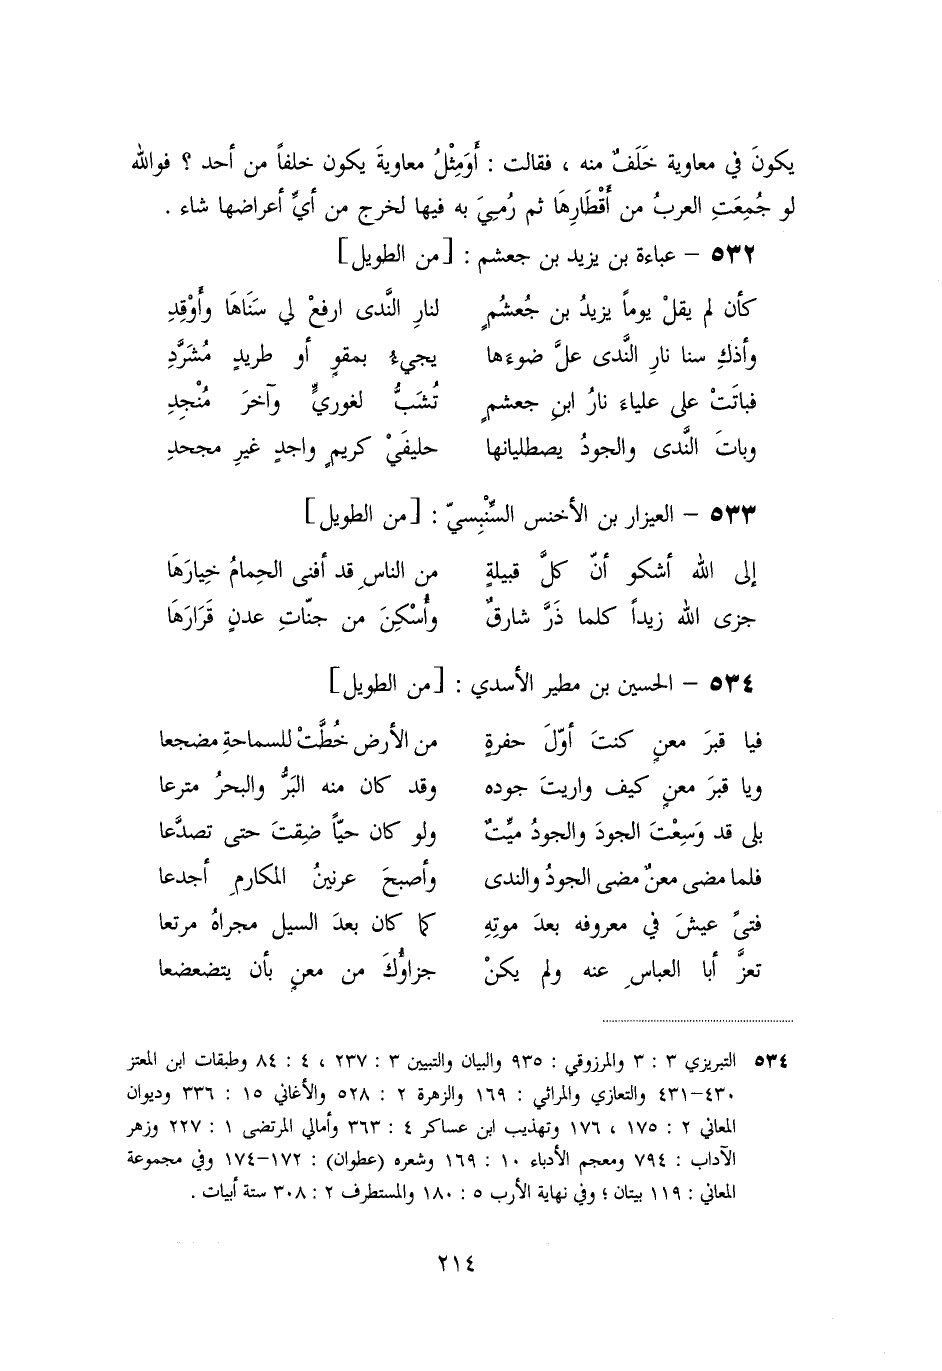 يكونَ في معاوية خَلَفٌ منه ، فقالت : أَوَمِثْلُ معاويةَ يكون خلفاً من أحد ؟ فوالله
لو جُمِعَتِ العربُ من أَقْطَارِهَا ثم رُمِيَ به فيها لخرج من أيِّ أعراضها شاء .
٥٣٢ – عباءة بن يزيد بن جعشم : [من الطويل]
كأن لم يقلْ يوماً يزيدُ بن جُعشُمٍ لنارِ النَّدى ارفعْ لي سَنَاهَا وأَوْقِدِ
وأذكِ سنا نارِ النَّدى علَّ ضوءها يجيءُ بمقوٍ أو طريدٍ مُشَرَّدِ
فباتَتْ على علياءَ نارُ ابنِ جعشمٍ تُشَبُّ لغوريٍّ وآخرَ مُنْجِدِ
وباتَ النَّدى والجودُ يصطليانها حليفَيْ كريمٍ واجدٍ غيرِ مجحدِ
٥٣٣ – العيزار بن الأخنس السِّنْبِسيّ : [من الطويل]
إلى الله أشكو أنّ كلَّ قبيلةٍ من الناسِ قد أفنى الحِمامُ خِيارَهَا
جزى الله زيداً كلما ذَرَّ شارقٌ وأُسْكِنَ من جنّاتِ عدنٍ قَرَارَهَا
٥٣٤ – الحسين بن مطير الأسدي : [من الطويل]
فيا قبرَ معنٍ كنتَ أوّلَ حفرةٍ من الأرض خُطَّتْ للسماحةِ مضجعا
ويا قبرَ معنٍ كيف واريتَ جوده وقد كان منه البَرُّ والبحرُ مترعا
بلى قد وَسِعْتَ الجودَ والجودُ ميِّتٌ ولو كان حيّاً ضِقتَ حتى تصدَّعا
فلما مضى معنٌ مضى الجودُ والندى وأصبحَ عرنينُ المكارمِ أجدعا
فتىً عيشَ في معروفه بعدَ موتِهِ كما كان بعدَ السيل مجراهُ مرتعا
تعزَّ أبا العباسِ عنه ولم يكنْ جزاؤُكَ من معنٍ بأن يتضعضعا
٥٣٤ التبريزي ٣ : ٣ والمرزوقي : ٩٣٥ والبيان والتبيين ٣ : ٢٣٧ ، ٤ : ٨٤ وطبقات ابن المعتز
٤٣٠–٤٣١ والتعازي والمراثي : ١٦٩ والزهرة ٢ : ٥٢٨ والأغاني ١٥ : ٣٣٦ وديوان
المعاني ٢ : ١٧٥ ، ١٧٦ وتهذيب ابن عساكر ٤ : ٣٦٣ وأمالي المرتضى ١ : ٢٢٧ وزهر
الآداب : ٧٩٤ ومعجم الأدباء ١٠ : ١٦٩ وشعره (عطوان) : ١٧٢–١٧٤ وفي مجموعة
المعاني : ١١٩ بيتان ؛ وفي نهاية الأرب ٥ : ١٨٠ والمستطرف ٢ : ٣٠٨ ستة أبيات .
٢١٤